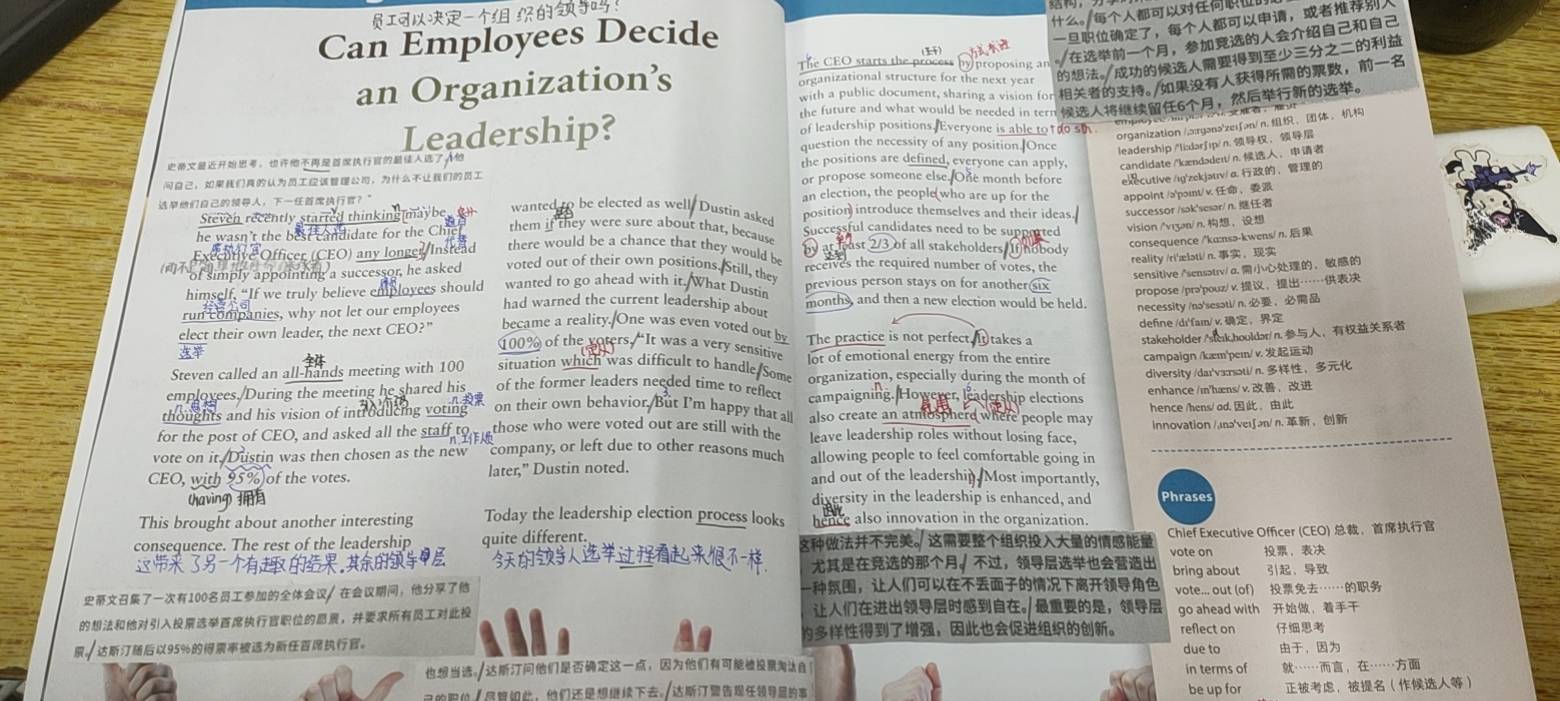 员工可以决定一个组织的领导吗?
Can Employees Decide
an Organization's
Leadership?
史蒂文最近开始思考，也许他不再是首席执行官的最佳人选了/他
问自己，如果我们真的认为员工应该管理公司，为什么不让我们的员工
选举他们自己的领导人，下一任首席执行官？"
Steven recently started thinking maybe
he wasn't the best candidate for the Chief
最佳人选
Executive Officer (CEO) any longer/Instead
of simply appointing a successor, he asked
himself, "If we truly believe employees should
经营公司
run companies, why not let our employees
elect their own leader, the next CEO?"
选举
全体
Steven called an all-hands meeting with 100
employees/During the meeting he shared his
thoughts and his vision of introducing voting
n.投票
for the post of CEO, and asked all the staff to
vote on it/Dustin was then chosen as the new
CEO, with 95% of the votes.
(having) 拥有
This brought about another interesting
consequence. The rest of the leadership
这带来了另一个有趣的结果.其余的领导层
史蒂文召集了一次有100名员工参加的全体会议/在会议期间，他分享了他
的想法和他对引入投票选举首席执行官职位的愿景，并要求所有员工对此投
票/达斯汀随后以95%的得票率被选为新任首席执行官。
wanted to be elected as well/Dustin asked
them if they were sure about that, because
there would be a chance that they would be
voted out of their own positions/Still, they
wanted to go ahead with it/What Dustin
had warned the current leadership about
became a reality/One was even voted out by
100% of the voters/"It was a very sensitive
situation which was difficult to handle/Some
of the former leaders needed time to reflect
on their own behavior/But I'm happy that all
those who were voted out are still with the
company, or left due to other reasons much
later," Dustin noted.
Today the leadership election process looks
quite different.
今天的领导人选举过程看起来很不一样.
也想当选/达斯汀问他们是否确定这一点，因为他们有可能被投票淘汰自
己的职位/尽管如此，他们还是想继续下去/达斯汀警告现任领导层的事
The CEO starts the process by proposing an
organizational structure for the next year
with a public document, sharing a vision for
the future and what would be needed in
of leadership positions/Everyone is able to
do so.
question the necessity of any position/Once
the positions are defined, everyone can apply,
or propose someone else/One month before
an election, the people who are up for the
position introduce themselves and their ideas/
Successful candidates need to be supported
by at least 2/3 of all stakeholders/If nobody
receives the required number of votes, the
previous person stays on for another six
months, and then a new election would be held.
The practice is not perfect/It takes a
lot of emotional energy from the entire
organization, especially during the month of
campaigning/However, leadership elections
also create an atmosphere where people may
leave leadership roles without losing face,
allowing people to feel comfortable going in
and out of the leadership/Most importantly,
diversity in the leadership is enhanced, and
因此
hence also innovation in the organization.
这种做法并不完美。/这需要整个组织投入大量的情感能量
尤其是在竞选的那个月/不过，领导层选举也会营造出
一种氛围，让人们可以在不丢面子的情况下离开领导角色
让人们在进出领导层时感到自在。/最重要的是，领导层
的多样性得到了增强，因此也会促进组织的创新。
什么。/每个人都可以对任何职位的
一旦职位确定了，每个人都可以申请，或者推荐别人
。/在选举前一个月，参加竞选的人会介绍自己和自己
的想法。/成功的候选人需要得到至少三分之二的利益
相关者的支持。/如果没有人获得所需的票数，前一名
候选人将继续留任6个月，然后举行新的选举。
organization /ˌɔːrɡənəˈzeɪʃən/ n. 组织、团体、机构
leadership /ˈliːdərʃɪp/ n. 领导权，领导层
candidate /ˈkændədeɪt/ n. 候选人，申请者
executive /ɪɡˈzekjətɪv/ a. 行政的，管理的
appoint /əˈpɔɪnt/ v. 任命，委派
successor /səkˈsesər/ n. 继任者
vision /ˈvɪʒən/ n. 构想，设想
consequence /ˈkɑːnsə-kwens/ n. 后果
reality /riˈæləti/ n. 事实，现实
sensitive /ˈsensətɪv/ a. 需小心处理的，敏感的
propose /prəˈpouz/ v. 提议，提出……供表决
necessity /nəˈsesəti/ n. 必要，必需品
define /dɪˈfaɪn/ v. 确定，界定
stakeholder /ˈsteɪkˌhouldər/ n. 参与人，有权益关系者
campaign /kæmˈpeɪn/ v. 发起运动
diversity /daɪˈvɜːrsəti/ n. 多样性，多元化
enhance /ɪnˈhæns/ v. 改善，改进
hence /hens/ ad. 因此，由此
innovation /ˌɪnəˈveɪʃən/ n. 革新，创新
Phrases
Chief Executive Officer (CEO) 总裁，首席执行官
vote on 投票，表决
bring about 引起，导致
vote... out (of) 投票免去……的职务
go ahead with 开始做，着手干
reflect on 仔细思考
due to 由于，因为
in terms of 就……而言，在……方面
be up for 正被考虑，被提名（作候选人等）